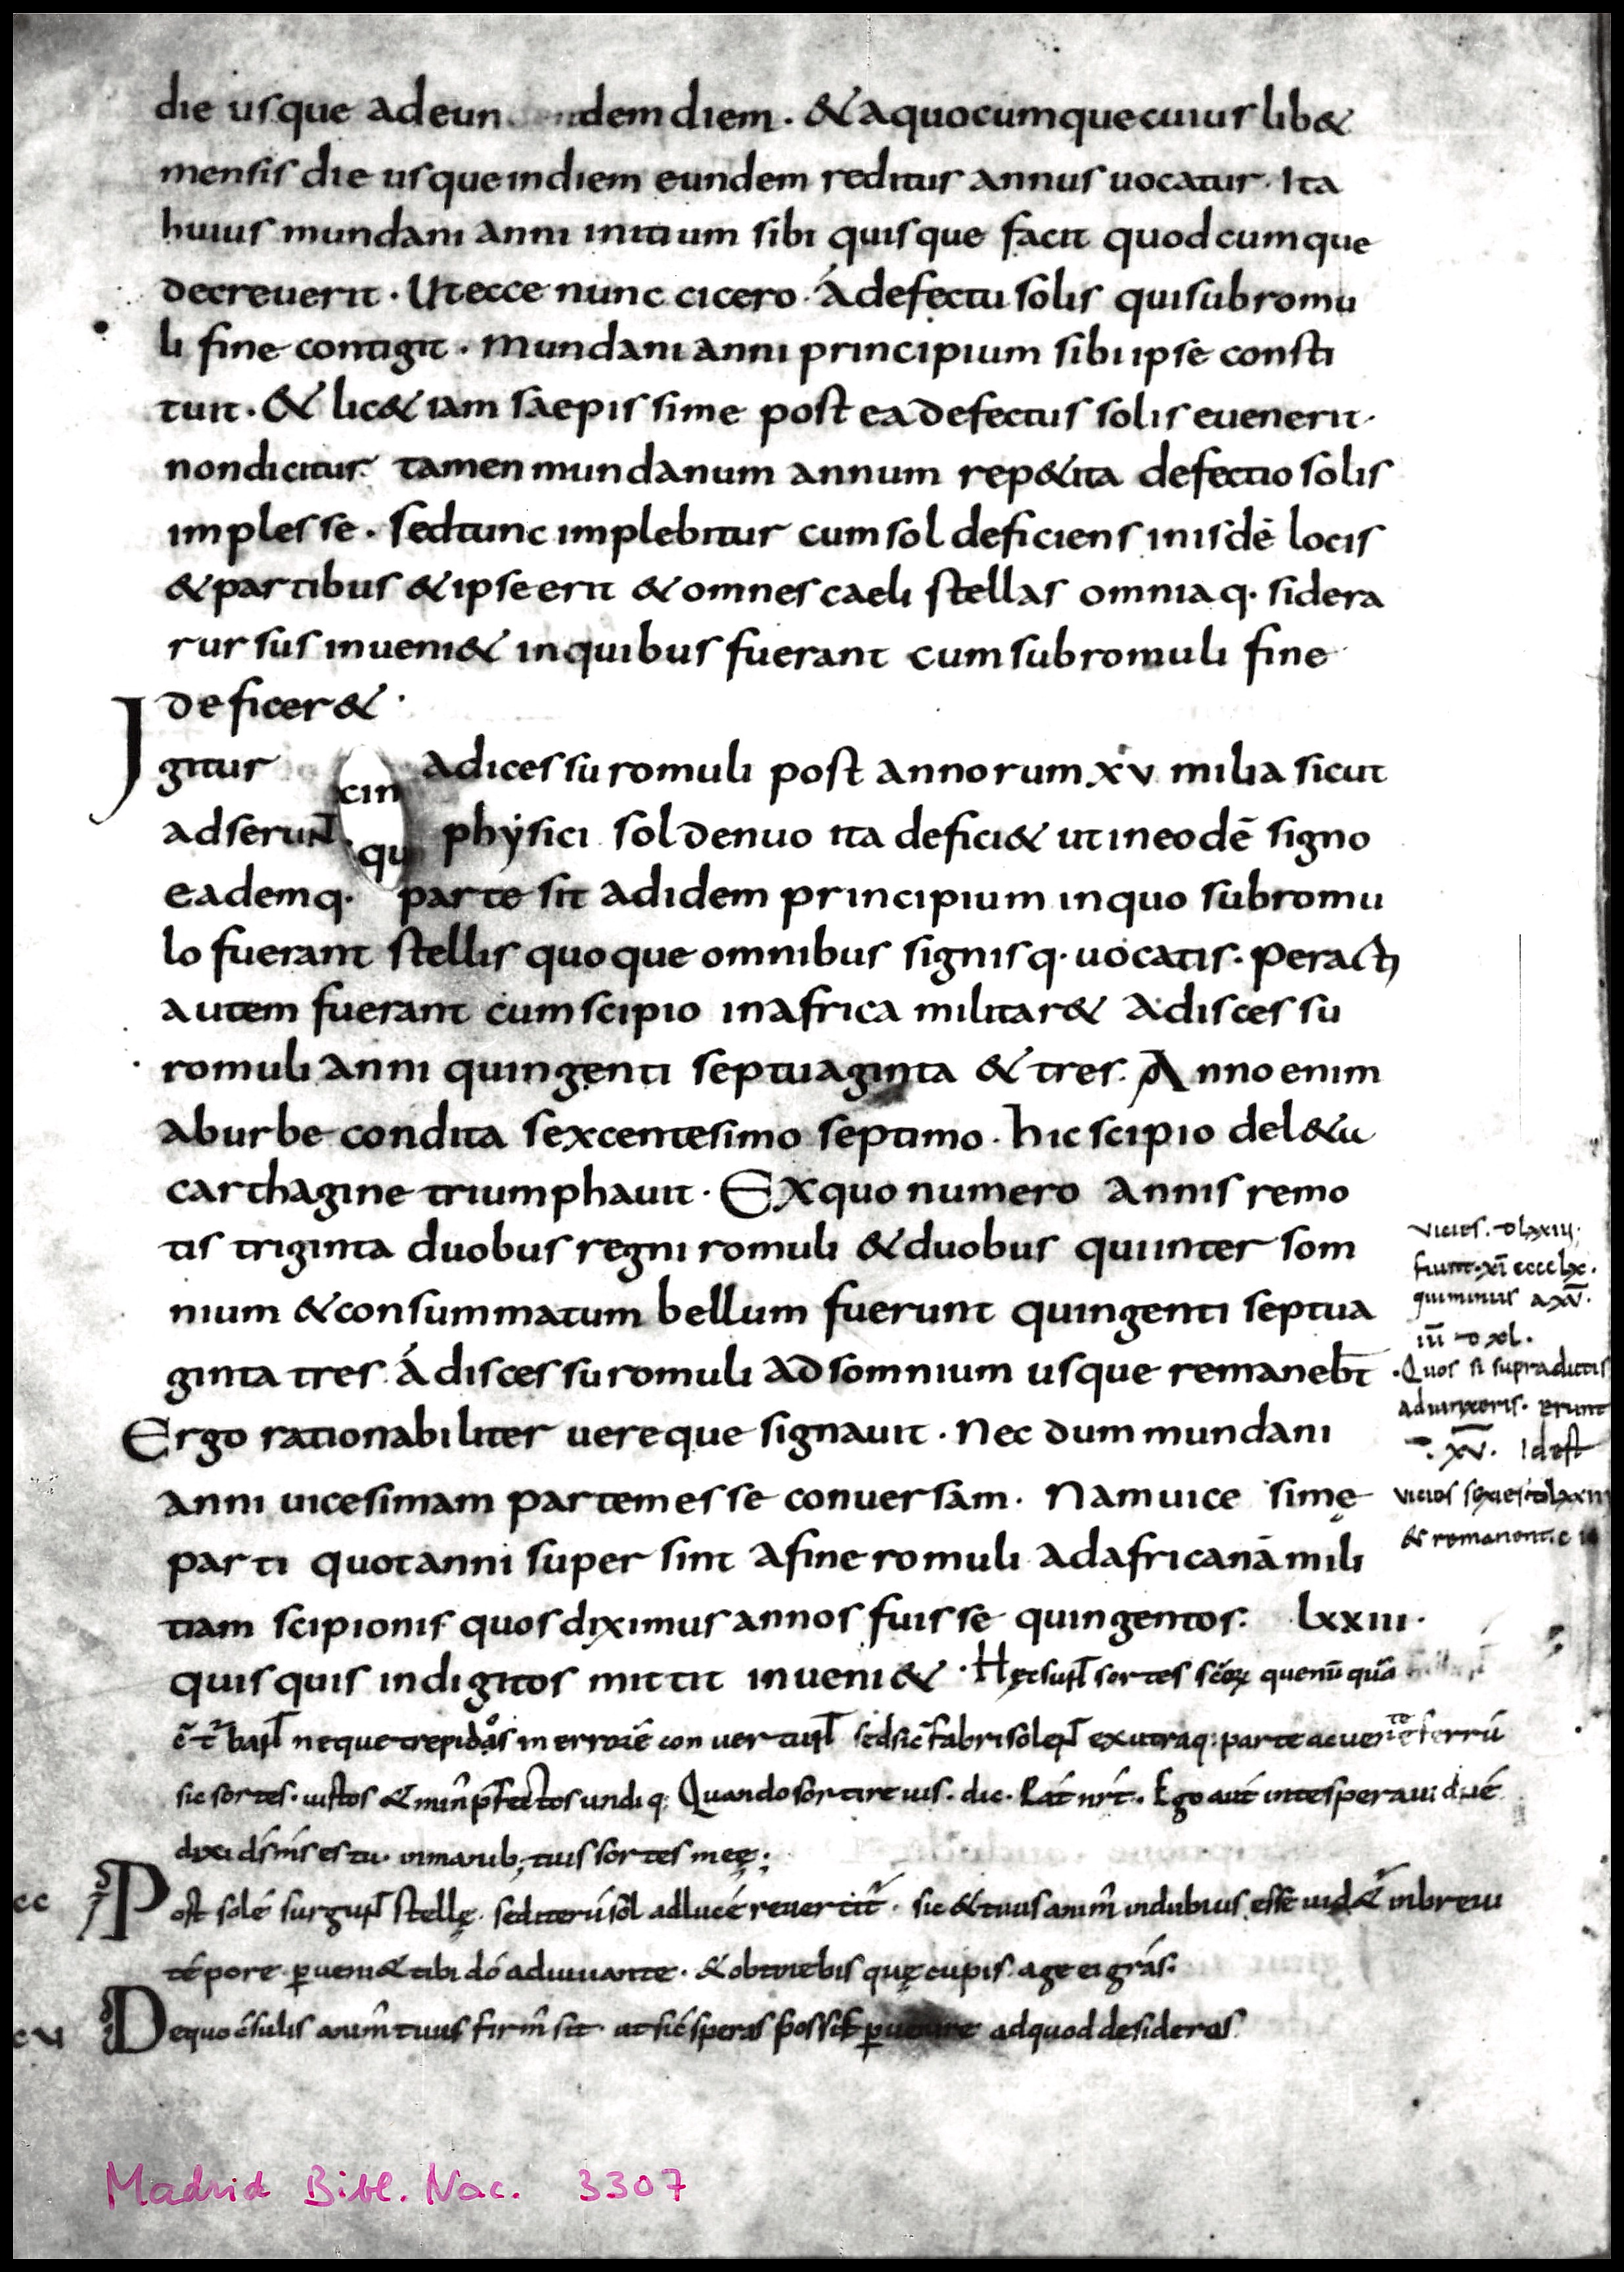 die usque adeun dem diem. & aquocumque cuius lib&
mensis die usque indiem eundem reditur annus uocatur. Ita
huius mundani anni initium sibi quisque facit quodcumque
decreuerit. Ut ecce nunc cicero. Á defectu solis qui sub romu
li fine contigit. mundani anni principium sibi ipse consti
tuit. & lic& iam saepissime post ea defectus solis euenerit.
non dicitur tamen mundanum annum rep&ita defectio solis
implesse. sed tunc implebitur cum sol deficiens in isdē locis
& partibus & ipse erit & omnes caeli stellas omniaq. sidera
rursus inueni& in quibus fuerant cum sub romuli fine
deficer&.
Igitur adicessu romuli post annorum xv milia sicut
cin
adserunt physici sol denuo ita defici& ut in eodē signo
qu
eademq. parte sit ad idem principium in quo sub romu
lo fuerant stellis quoque omnibus signisq. uocatis. peractι
autem fuerant cum scipio in africa militar& adiscessu
romuli anni quingenti septuaginta & tres. Anno enim
ab urbe condita sexcentesimo septimo. hic scipio del&a
carthagine triumphauit. Ex quo numero annis remo
tis triginta duobus regni romuli & duobus qui inter som
nium & consummatum bellum fuerunt quingenti septua
ginta tres. á discessu romuli ad somnium usque remaneb̄t
Ergo rationabiliter uereque signauit. nec dum mundani
anni uicesimam partem esse conuersam. Nam uice simę
parti quot anni supersint a fine romuli ad africanā mili
tiam scipionis quos diximus annos fuisse quingentos. lxxiii.
quisquis in digitos mittit inueni&.
uicies. dlxxiii.
fiunt. xī cccclx.
qui minus a xv̄.
iīī dxl.
Quos si supradictis
adiunxeris. erunt
xv̄. Idest
& remanent
Hęc sunt sortes
neque trepidas in errorē conuertunt sed sic fabri solent ex utraq; parte acuere ferrū
sic sortes. iustos undiq; Quando sortire uis. dic. Ego autē in te speraui dn̄e
dixi d͞s m͞s es tu. in manib; tuis sortes meę;
cc Post solē surgunt stellę. sed iterū sol ad lucē reuertitur. sic & tuus anim̄ in dubius esse uid&ur in breui
tēpore perueni& tibi dō adiuuante. & obtinebis quę cupis. age ei gr̄as.
cu De quo cōsulis anim̄ tuus firm̄ sit ut sic speras possis peruenire ad quod desideras.
Madrid Bibl. Nac. 3307